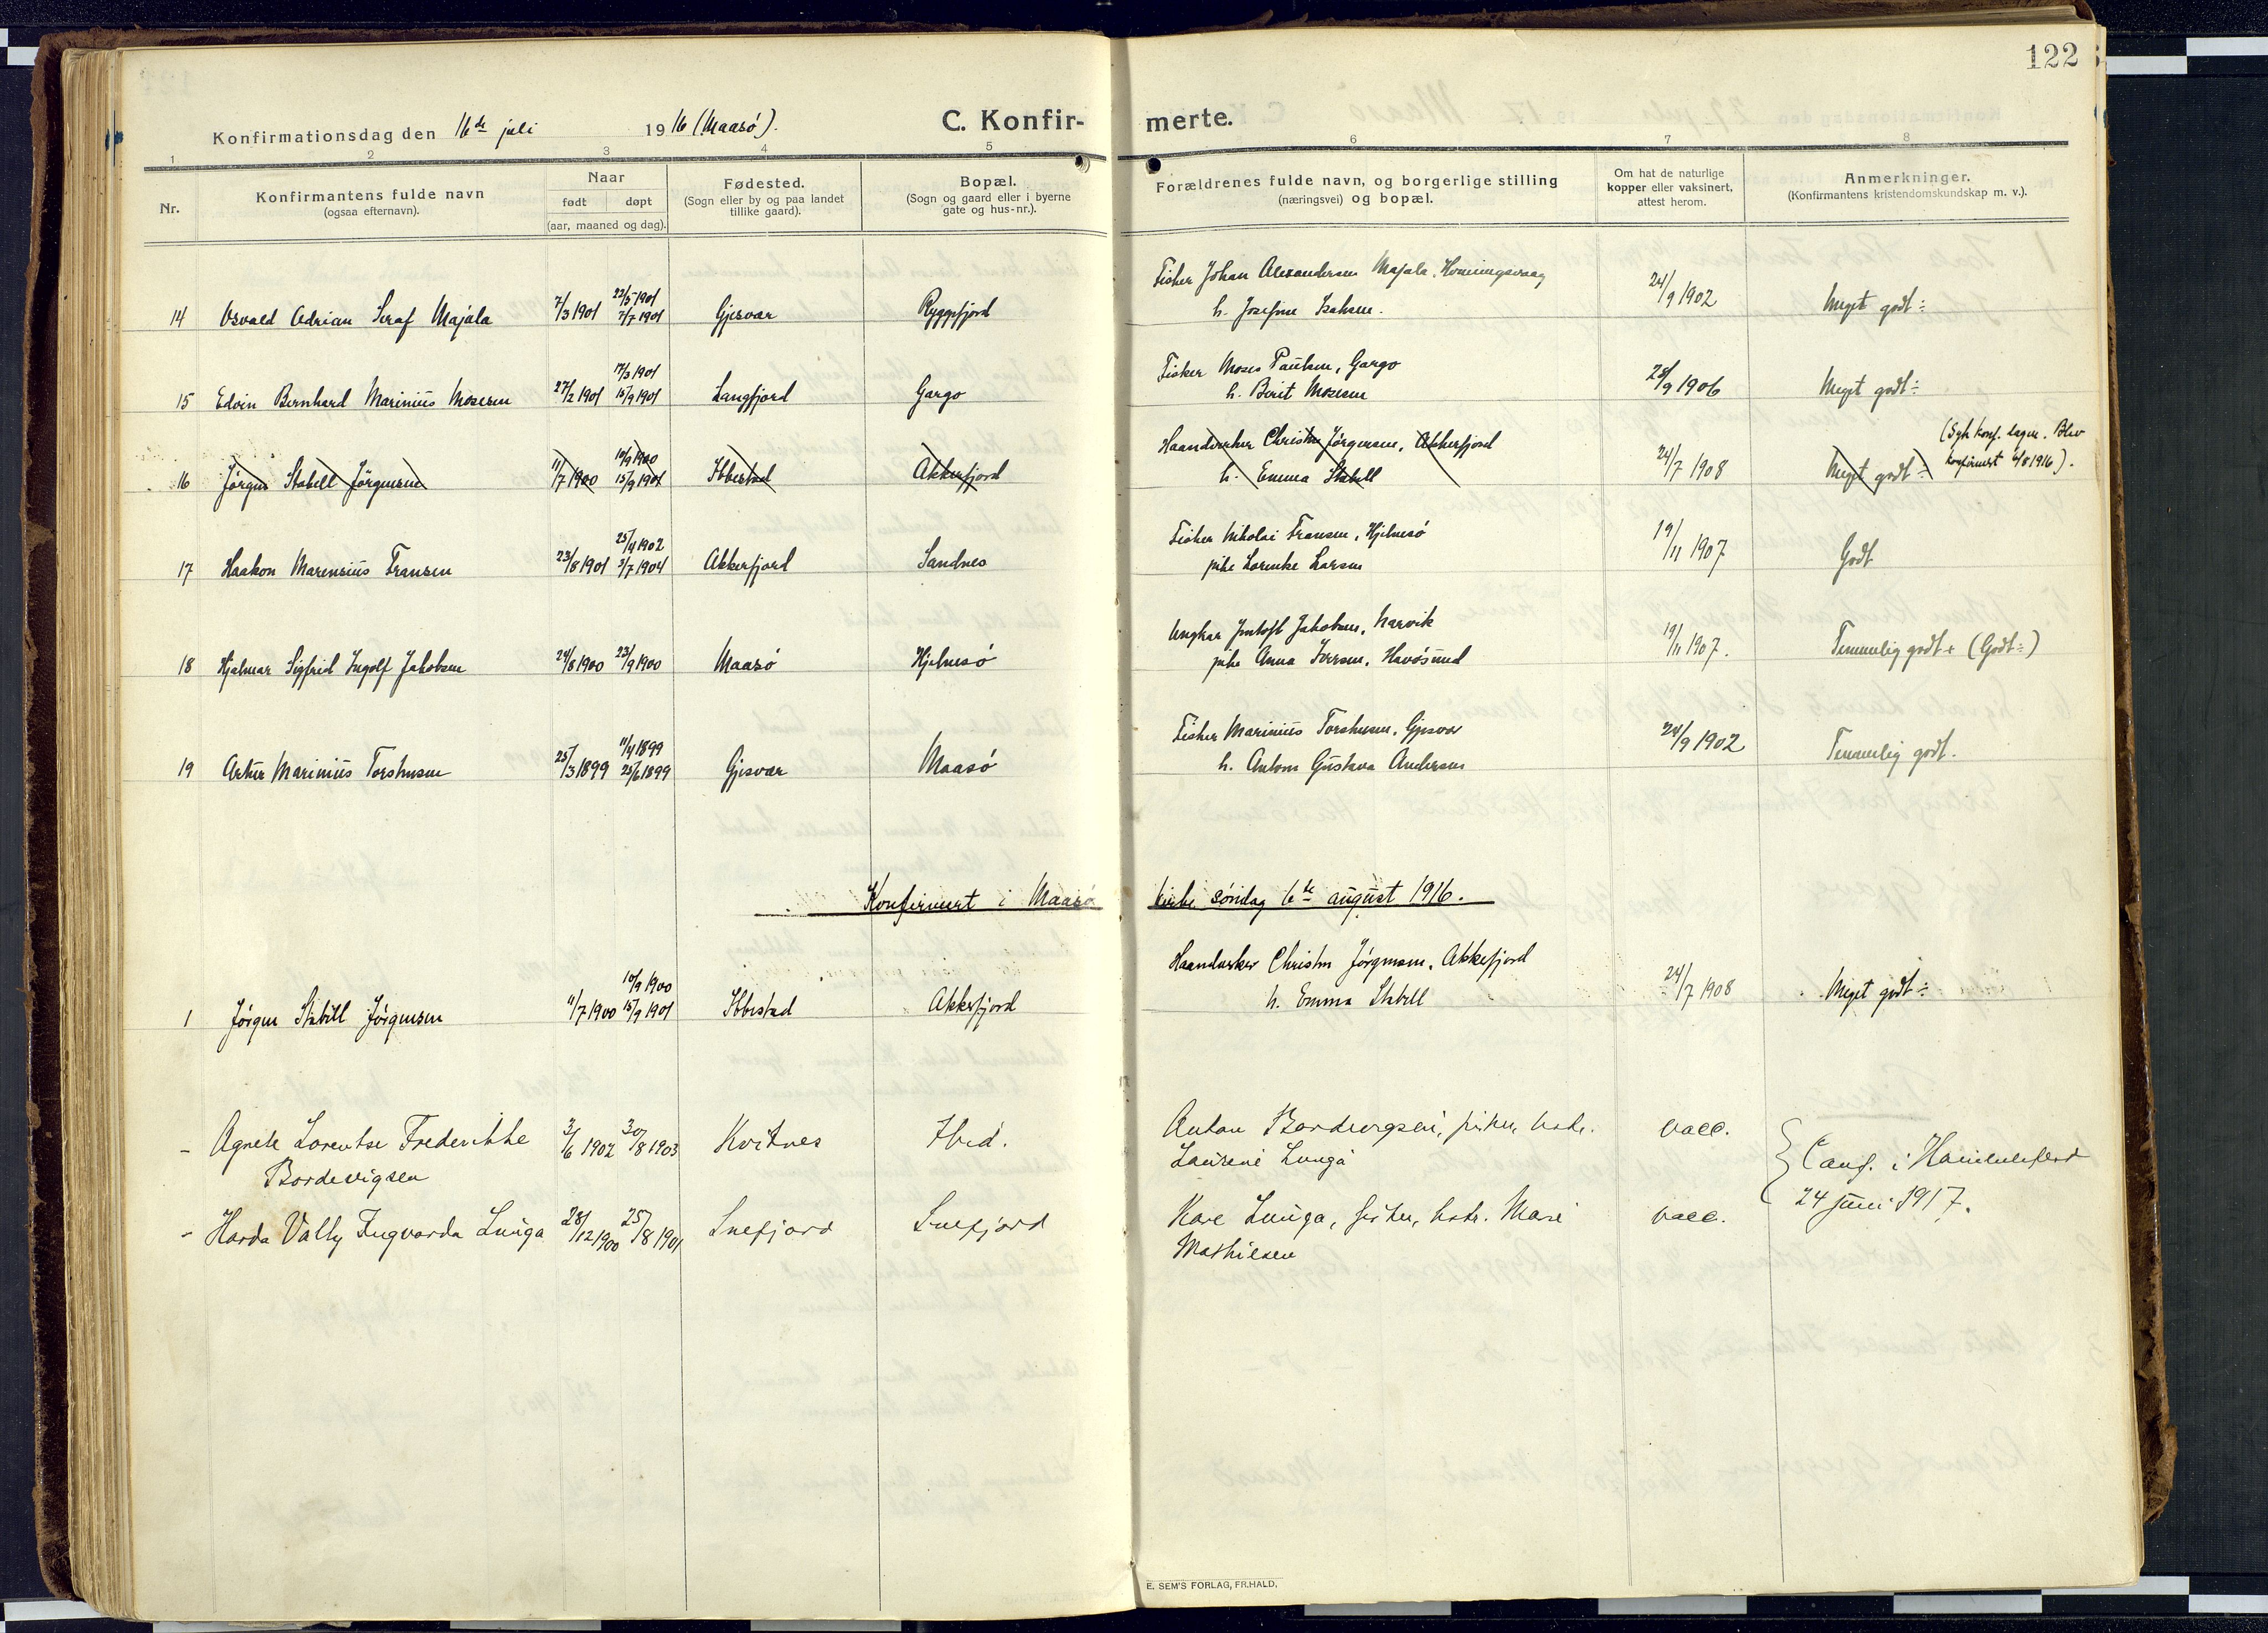 122
Konfirmationsdag den 16de juli 1916 (Maasö).
C. Konfirmerte.
1 2 3 4 5 6 7 8
Nr.
Konfirmantens fulde navn
(ogsaa efternavn).
Naar
født døpt
(aar, maaned og dag).
Fødested.
(Sogn eller by og paa landet
tillike gaard).
Bopæl.
(Sogn og gaard eller i byerne
gate og hus-nr.).
Forældrenes fulde navn, og borgerlige stilling
(næringsvei) og bopæl.
Om hat de naturlige
kopper eller vaksinert,
attest herom.
Anmerkninger.
(Konfirmantens kristendomskundskap m. v.).
Fisker Johan Alexandersen Majala, Honningsvaag
23/5 1901
14 Osvald Adrian Seraf Majala 7/3 1901 7/7 1901 Gjesvær Ryggefjord h. Josefine Isaksen. 24/9 1902 Meget godt÷
17/3 1901 Fisker Moses Paulsen, Gargo
15 Edvin Bernhard Marinius Mosesen 27/2 1901 15/9 1901 Langfjord Gargo h. Berit Mosesen 28/9 1906 Meget godt÷
10/9 1900 Haandverker Christen Jörgensen, Akkerfjord (Syk konf. dagen. Blev
16 Jörgen Stabell Jörgensen 11/7 1900 15/9 1901 Ibbestad Akkerfjord h. Emma Stabell 24/7 1908 Meget godt÷ konfirmert 6/8 1916).
25/4 1902 Fisker Nikolai Fransen, Hjelmsö
17 Haakon Marensius Fransen 23/8 1901 3/7 1904 Akkerfjord Sandnes pike Lorenke Larsen 19/11 1907 Godt
Ungkar Jentoft Jakobsen, Narvik
18 Hjalmar Sigfrid Ingolf Jakobsen 24/8 1900 23/9 1900 Maasö Hjelmsö pike Anna Iversen, Havösund 19/11 1907. Temmelig godt+ (Godt÷)
11/4 1899 Fisker Marinius Torstensen, Gjesvær
19 Artur Marinius Torstensen 25/3 1899 25/6 1899 Gjesvær Maasö h. Antone Gustava Andersen 24/9 1902 Temmelig godt.
Konfirmert i Maasö kirke söndag 6te august 1916.
10/9 1900 Haandverker Christen Jörgensen, Akkefjord
1 Jörgen Stabell Jörgensen 11/7 1900 15/9 1901 Ibbestad Akkefjord h. Emma Stabell 24/7 1908 Meget godt÷
- Agnete Lorentse Frederikke 3/6 1902 30/8 1903 Kvitnes Ibid. Anton Bordevigsen, fisker, hstr. vacc.
Bordevigsen Laurine Lunga Conf. i Hammerfest
24 juni 1917.
- Harda Vally Ingvarda Lunga 28/12 1900 25/8 1901 Snefjord Snefjord Kare Lunga, fisker, hstr. Mari vacc.
Mathiesen
E. SEM'S FORLAG, FR.HALD.